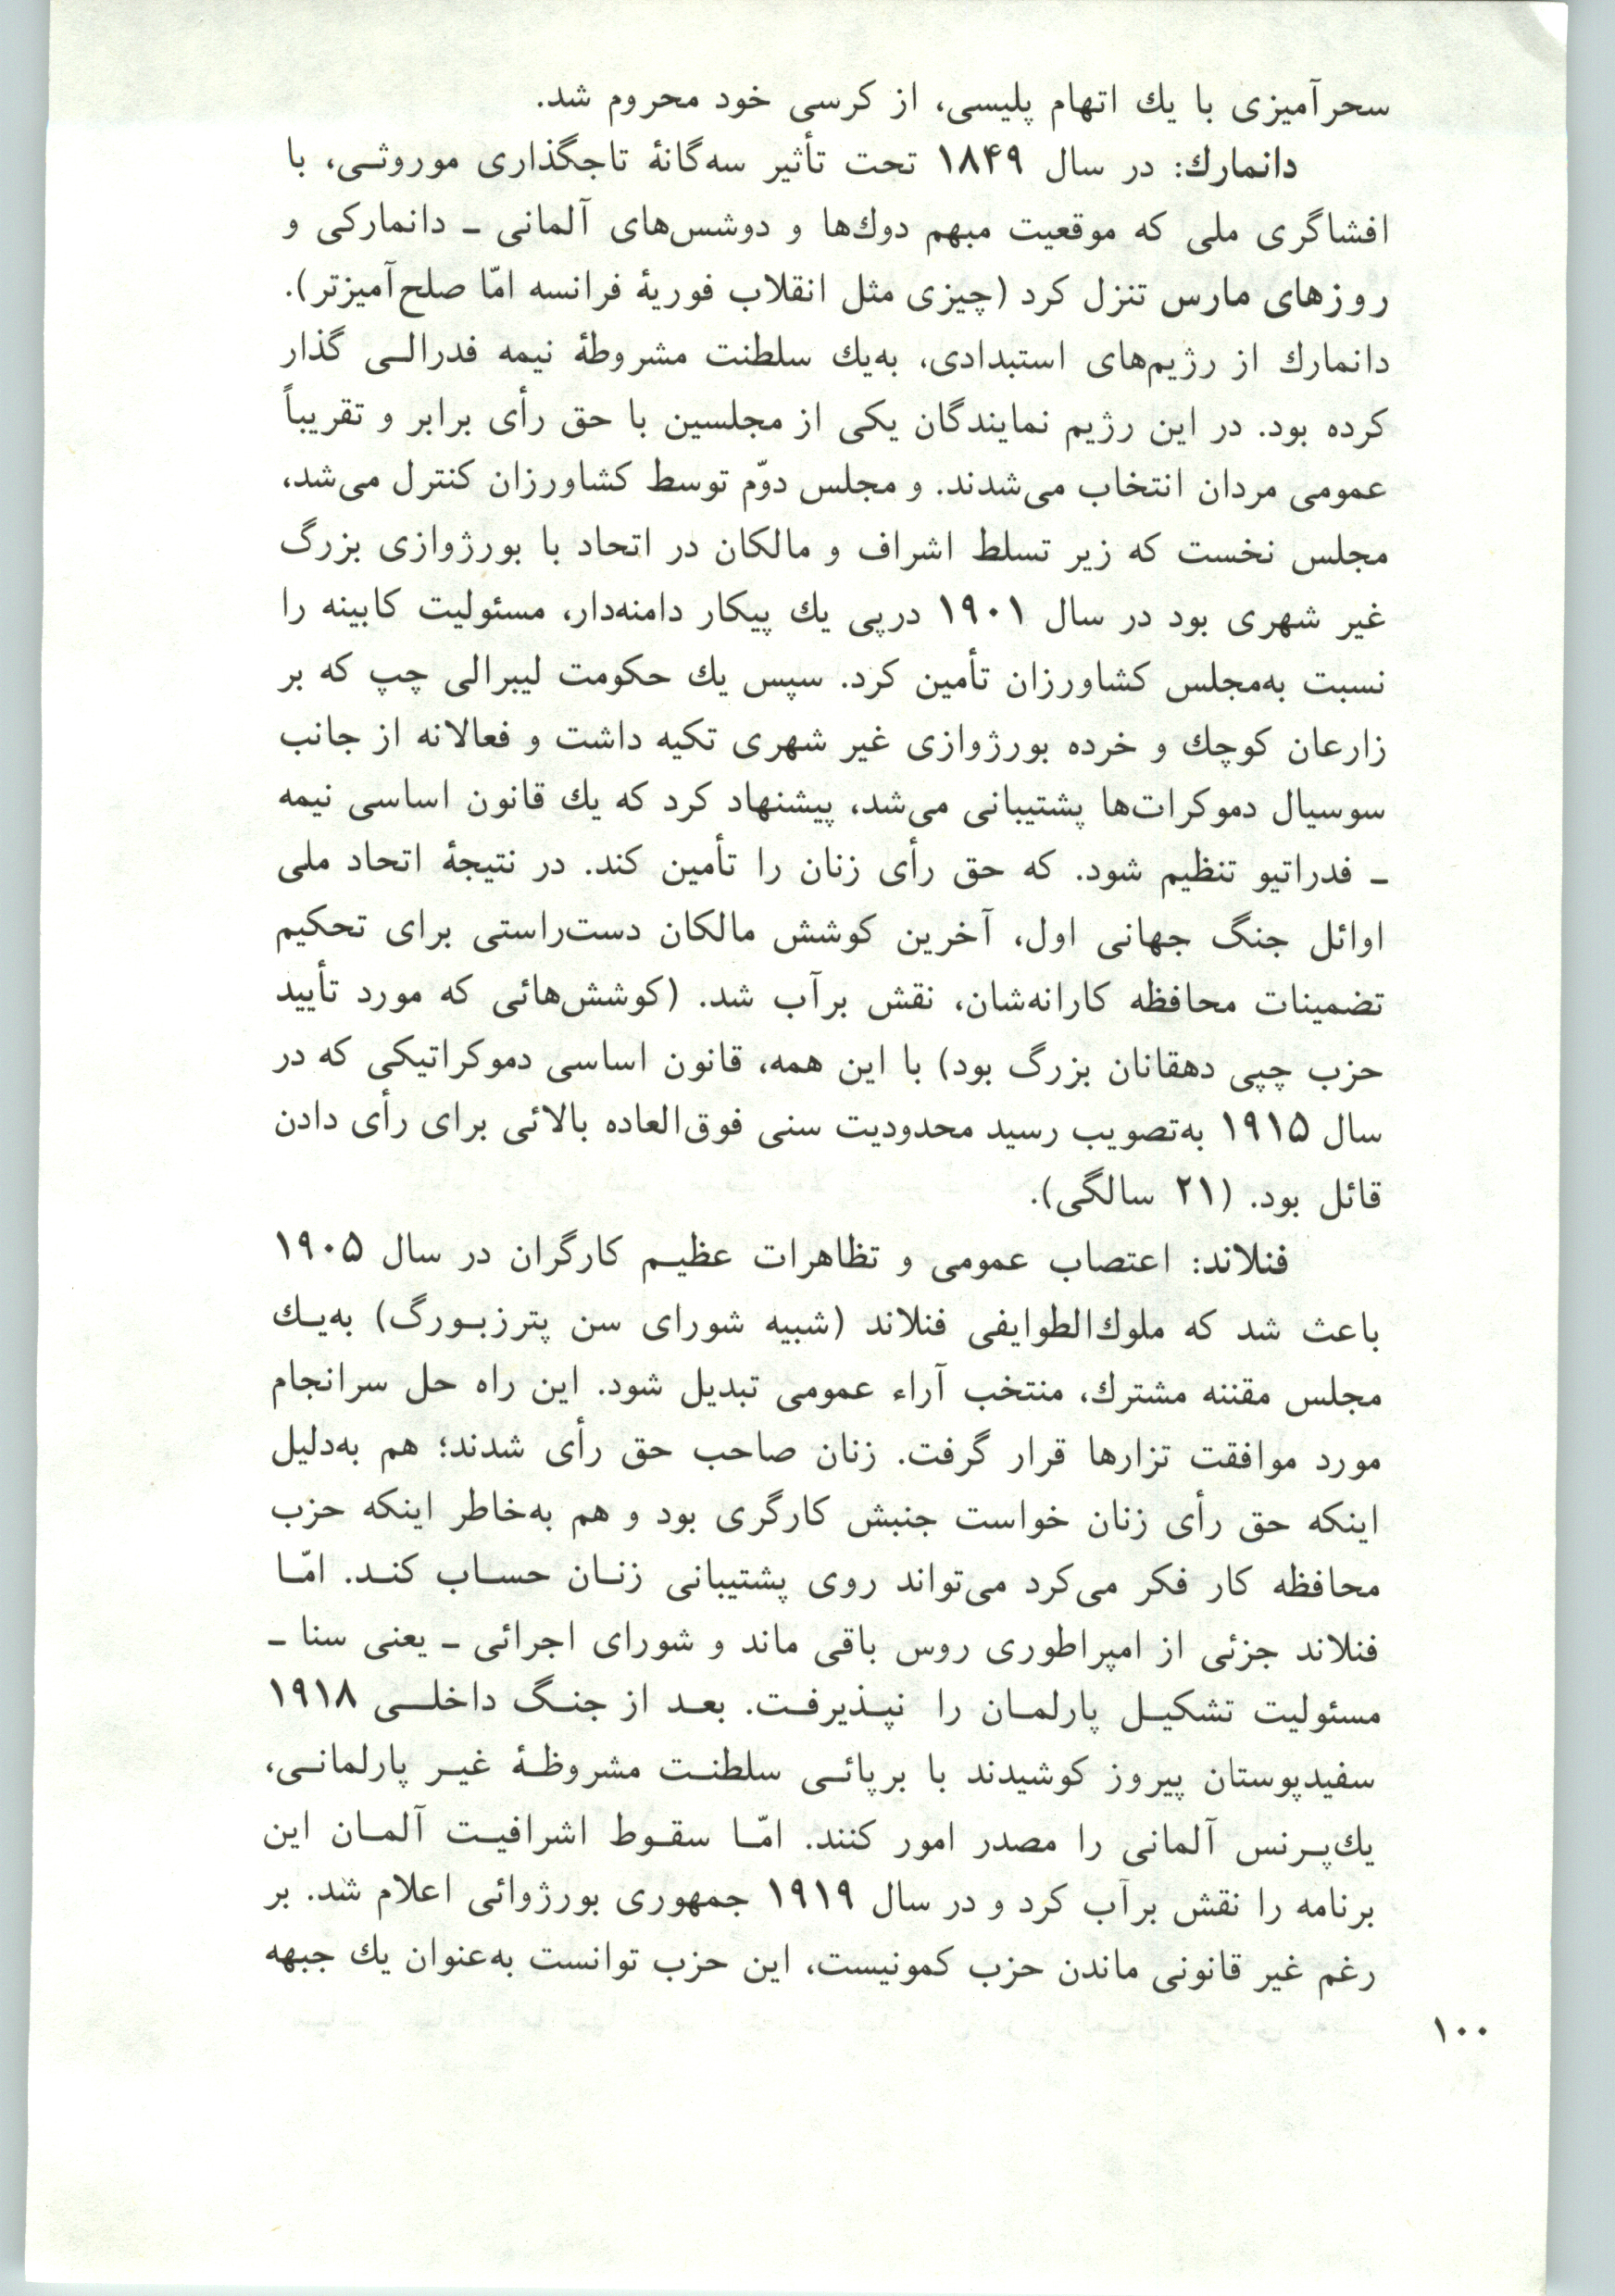 سحرآمیزی با یك اتهام پلیسی، از کرسی خود محروم شد.
دانمارك: در سال ۱۸۴۹ تحت تأثیر سه‌گانهٔ تاجگذاری موروثـی، با
افشاگری ملی که موقعیت مبهم دوك‌ها و دوشس‌های آلمانی ـ دانمارکی و
روزهای مارس تنزل کرد (چیزی مثل انقلاب فوریهٔ فرانسه امّا صلح‌آمیزتر).
دانمارك از رژیم‌های استبدادی، به‌یك سلطنت مشروطهٔ نیمه فدرالـی گذار
کرده بود. در این رژیم نمایندگان یکی از مجلسین با حق رأی برابر و تقریباً
عمومی مردان انتخاب می‌شدند. و مجلس دوّم توسط کشاورزان کنترل می‌شد،
مجلس نخست که زیر تسلط اشراف و مالکان در اتحاد با بورژوازی بزرگ
غیر شهری بود در سال ۱۹۰۱ درپی یك پیکار دامنه‌دار، مسئولیت کابینه را
نسبت به‌مجلس کشاورزان تأمین کرد. سپس یك حکومت لیبرالی چپ که بر
زارعان کوچك و خرده بورژوازی غیر شهری تکیه داشت و فعالانه از جانب
سوسیال دموکرات‌ها پشتیبانی می‌شد، پیشنهاد کرد که یك قانون اساسی نیمه
ـ فدراتیو تنظیم شود. که حق رأی زنان را تأمین کند. در نتیجهٔ اتحاد ملی
اوائل جنگ جهانی اول، آخرین کوشش مالکان دست‌راستی برای تحکیم
تضمینات محافظه کارانه‌شان، نقش برآب شد. (کوشش‌هائی که مورد تأیید
حزب چپی دهقانان بزرگ بود) با این همه، قانون اساسی دموکراتیکی که در
سال ۱۹۱۵ به‌تصویب رسید محدودیت سنی فوق‌العاده بالائی برای رأی دادن
قائل بود. (۲۱ سالگی).
فنلاند: اعتصاب عمومی و تظاهرات عظیـم کارگران در سال ۱۹۰۵
باعث شد که ملوك‌الطوایفی فنلاند (شبیه شورای سن پترزبـورگ) به‌یـك
مجلس مقننه مشترك، منتخب آراء عمومی تبدیل شود. این راه حل سرانجام
مورد موافقت تزارها قرار گرفت. زنان صاحب حق رأی شدند؛ هم به‌دلیل
اینکه حق رأی زنان خواست جنبش کارگری بود و هم به‌خاطر اینکه حزب
محافظه کار فکر می‌کرد می‌تواند روی پشتیبانی زنـان حسـاب کنـد. امّـا
فنلاند جزئی از امپراطوری روس باقی ماند و شورای اجرائی ـ یعنی سنا ـ
مسئولیت تشکیـل پارلمـان را نپـذیرفـت. بعـد از جنـگ داخلـی ۱۹۱۸
سفیدپوستان پیروز کوشیدند با برپائـی سلطنـت مشروظـهٔ غیـر پارلمانـی،
یك‌پـرنس آلمانی را مصدر امور کنند. امّـا سقـوط اشرافیـت آلمـان این
برنامه را نقش برآب کرد و در سال ۱۹۱۹ جمهوری بورژوائی اعلام شد. بر
رغم غیر قانونی ماندن حزب کمونیست، این حزب توانست به‌عنوان یك جبهه
۱۰۰